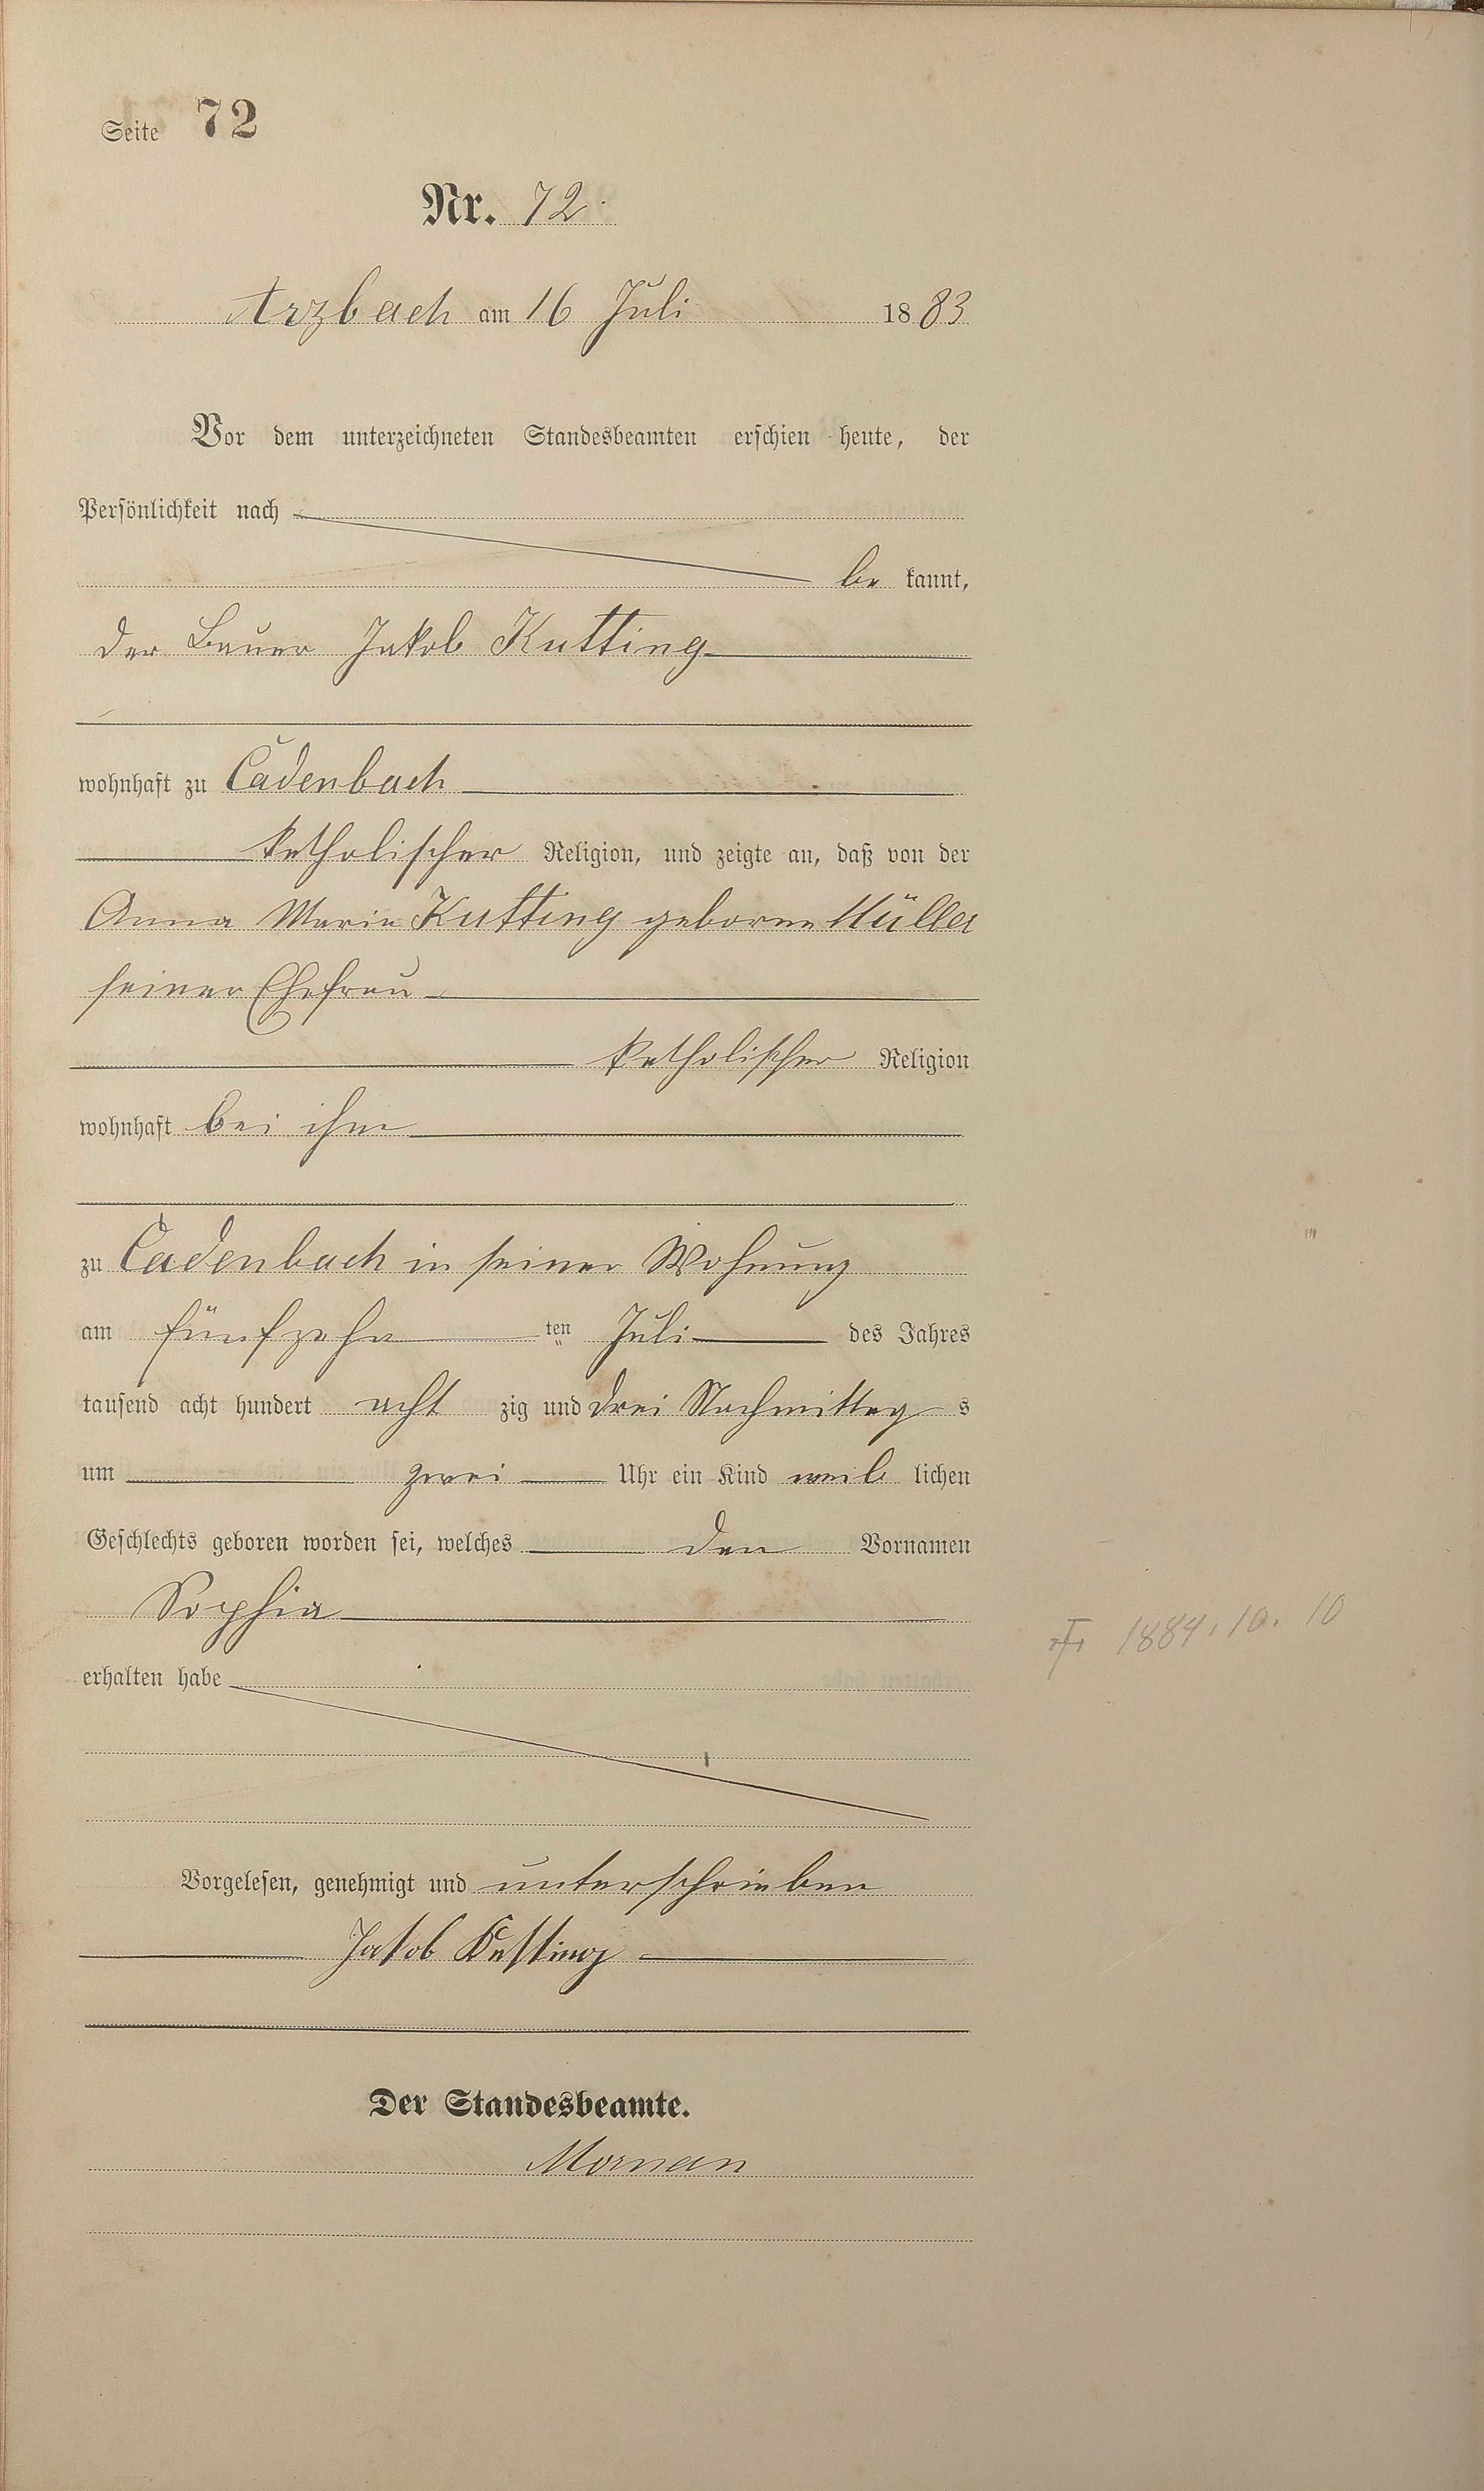 Seite 72
Nr. 72.
Arzbach am 16 Juli 1883
Vor dem unterzeichneten Standesbeamten erschien heute, der
Persönlichkeit nach
be kannt,
der Bauer Jakob Kutting
wohnhaft zu Cadenbach
katholischer Religion, und zeigte an, daß von der
Anna Maria Kutting geborne Müller
seiner Ehefrau
katholischer Religion
wohnhaft bei ihm
zu Cadenbach in seiner Wohnung
am fünfzehn ten Juli des Jahres
tausend acht hundert acht zig und drei Nachmittag s
um zwei Uhr ein Kind weib lichen
Geschlechts geboren worden sei, welches den Vornamen
Sophia
1884. 10. 10
erhalten habe
Vorgelesen, genehmigt und unterschrieben
Jakob Kutting
Der Standesbeamte.